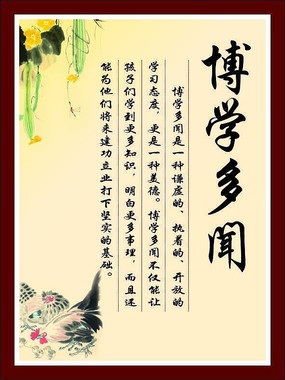 博学多闻
博学多闻是一种谦虚的、执着的、开放的
学习态度，更是一种美德。博学多闻不仅能让
孩子们学到更多知识，明白更多事理，而且还
能为他们将来建功立业打下坚实的基础。